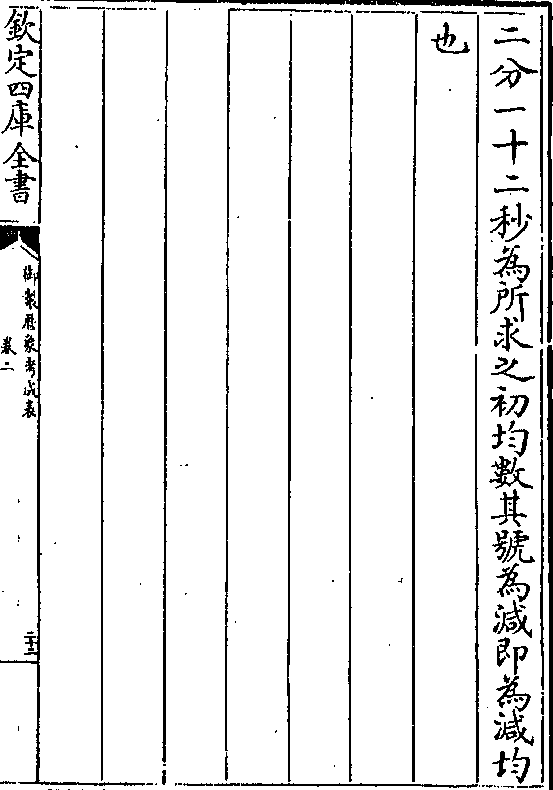 二分一十二秒為所求之初均數其號為減即為減均
也
欽定四庫全書
御製厯象考成表
卷二